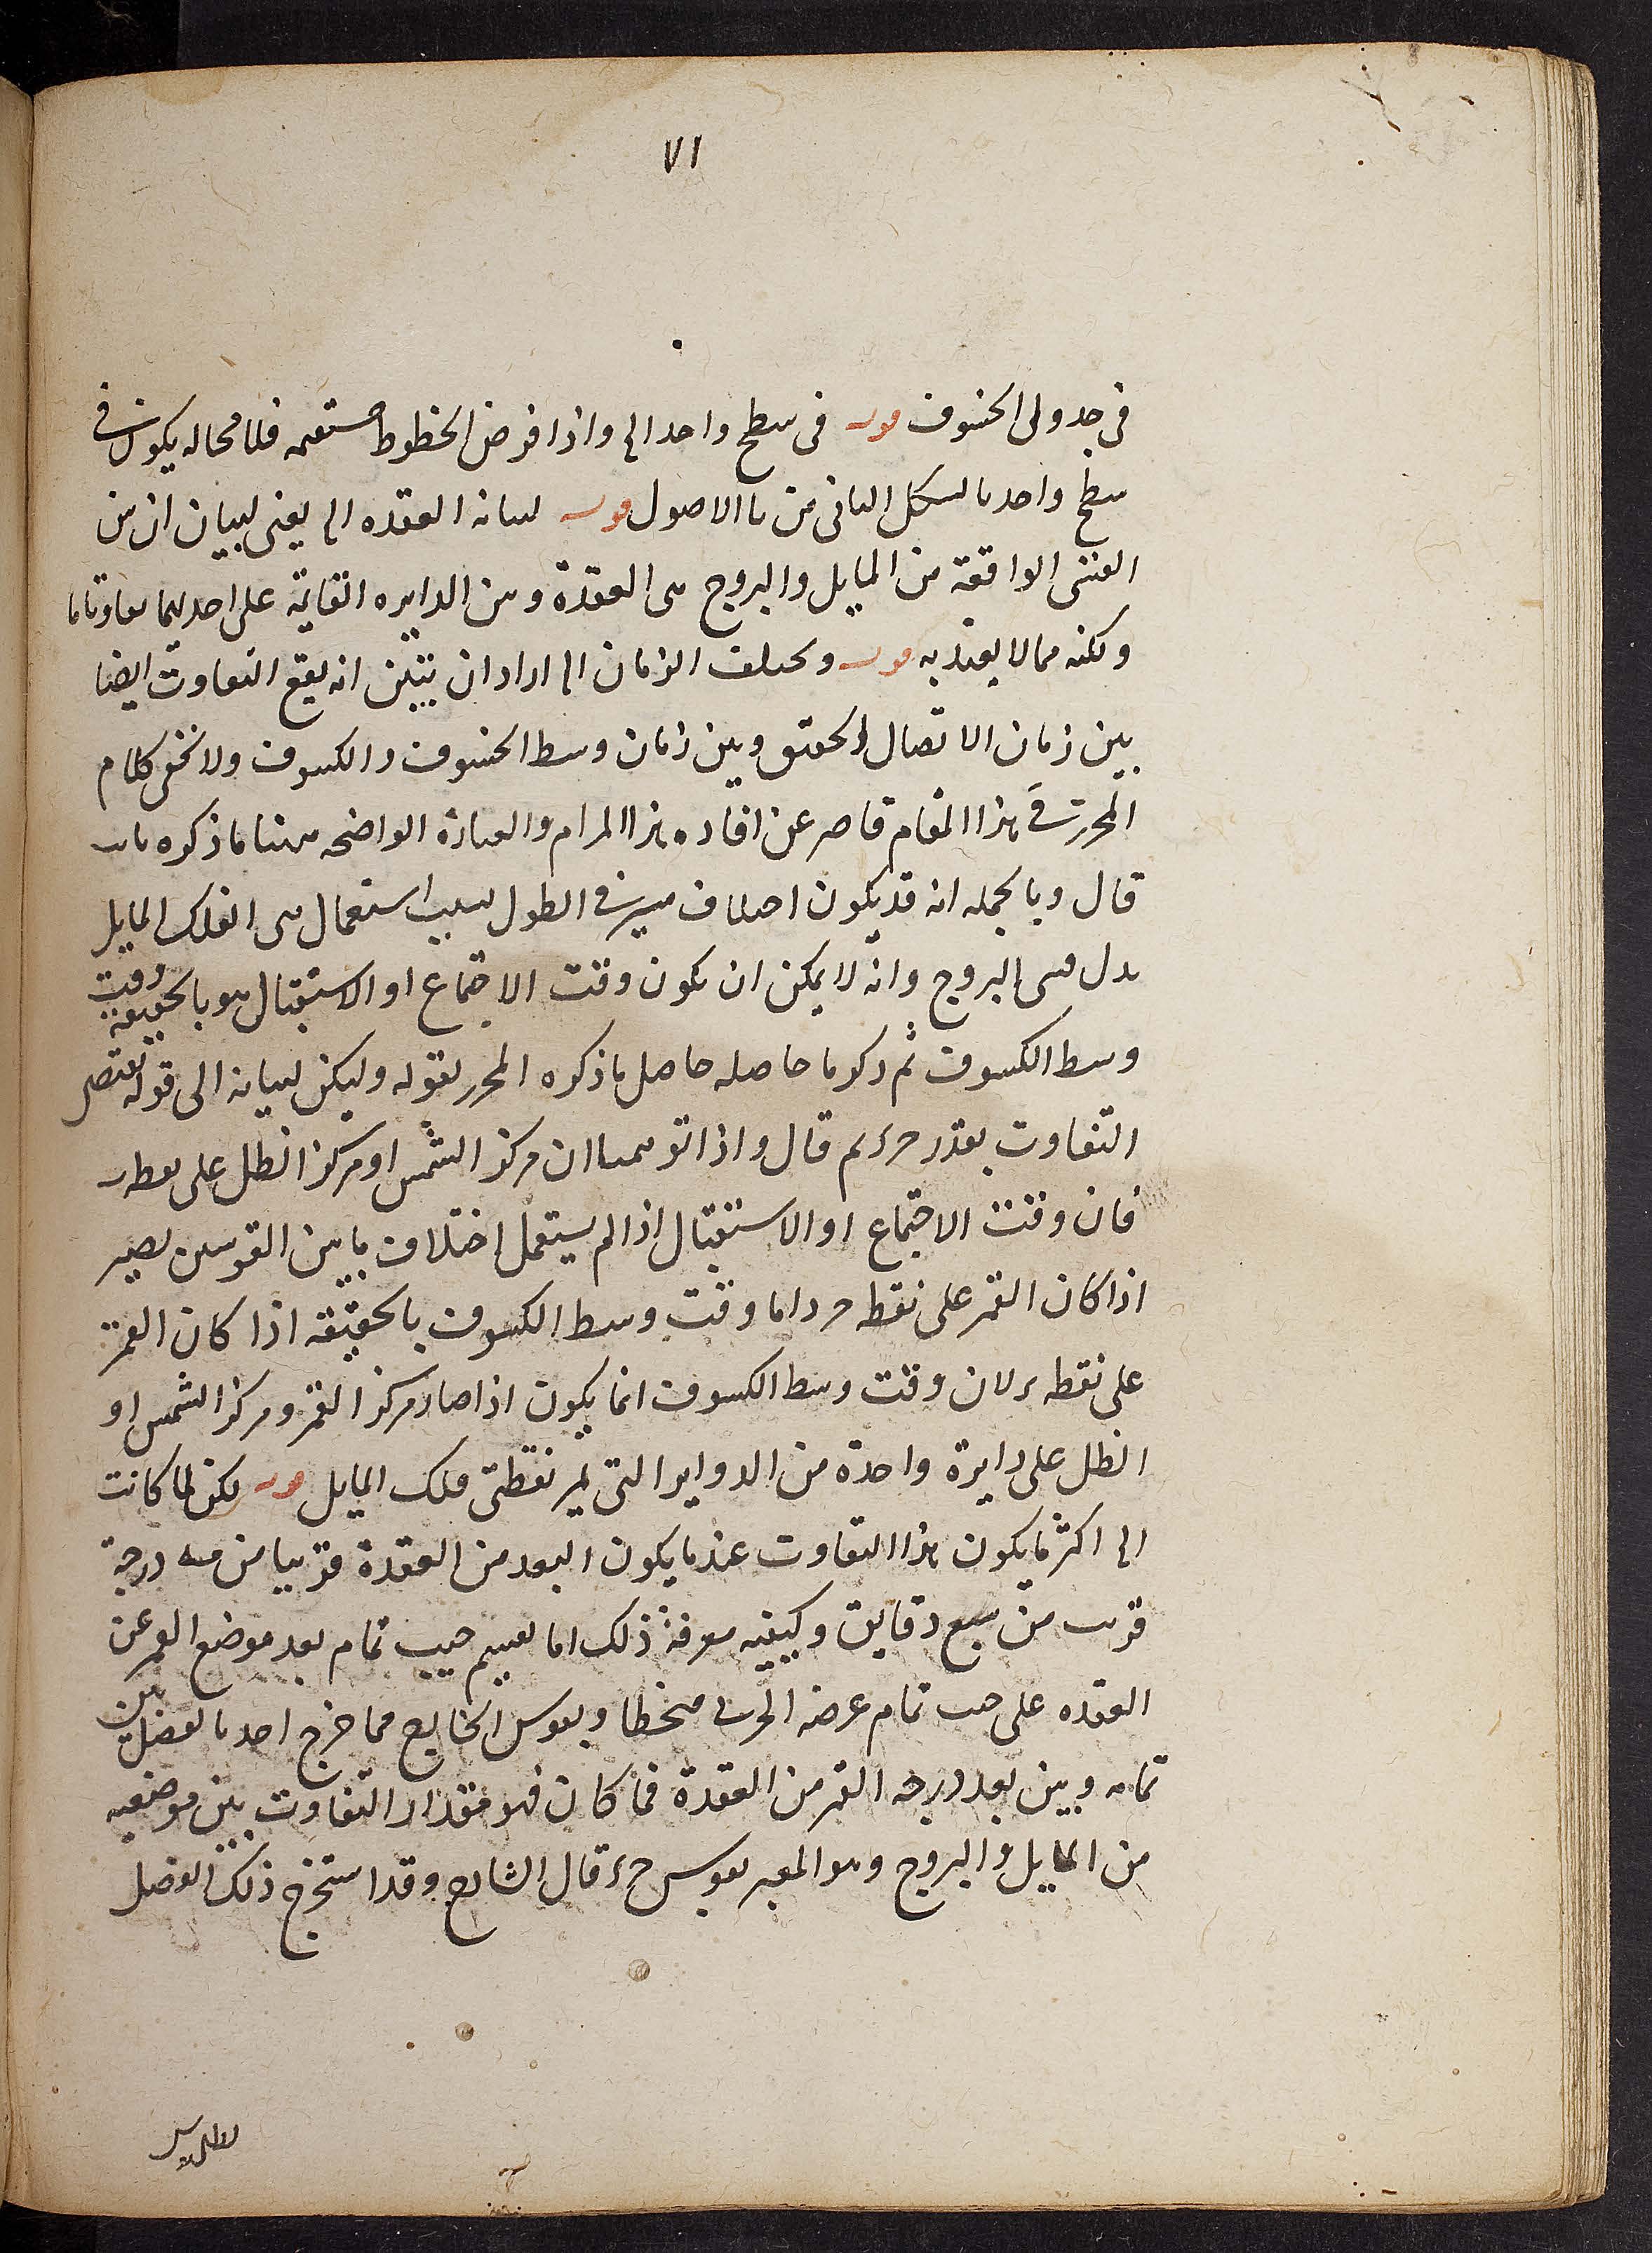 ٧١
فى جدولى الخسوف قوله فى سطح واحد الخ واذا فرض الخطوط مستقيمه فلا محاله يكون فى
سطح واحد بالشكل الثانى من يا الاصول قوله لبيانه العقده الخ يعنى لبيان ان بين
القسى الواقعة من المايل والبروج بين العقدة وبين الدايره القايمة على احديهما تفاوتا ما
ولكنه مما لا يعتد به قوله ويختلف الزمان الخ اراد ان يتبين انه يقع التفاوت ايضا
بين زمان الاتصال الحقيقى وبين زمان وسط الخسوف والكسوف ولا يخفى كلام
المحرر فى هذا المقام قاصر عن افاده هذا المرام والعبارة الواضحه ههنا ما ذكره
قال وبالجمله انه قد يكون اختلاف مسير فى الطول بسبب استعمال قسى الفلك المايل
بدل قسى البروج وانه لا يمكن ان يكون وقت الاجتماع او الاستقبال هو بالحقيقة وقت
وسط الكسوف ثم ذكر ما حاصله حاصل ما ذكره المحرر بقوله وليكن لبيانه الى قوله
التفاوت بقدر ح ء ثم قال واذا توهمنا ان مركز الشمس او مركز الظل على نقطه ب
فان وقت الاجتماع او الاستقبال اذا لم يستعمل اختلاف ما بين القوسين يصير
اذا كان القمر على نقطه ح واما وقت وسط الكسوف بالحقيقه اذا كان القمر
على نقطه ء لان وقت وسط الكسوف انما يكون اذا صار مركز القمر ومركز الشمس او
الظل على دايرة واحدة من الدواير التى تمر بنقطتى فلك المايل قوله لكن لما كانت
الخ اكثر ما يكون هذا التفاوت عندما يكون البعد من العقدة قريبا من مه درجة
قريب من سبع دقايق وكيفيه معرفة ذلك اما نقسم جيب تمام بعد موضع القمر عن
العقده على جيب تمام عرضه الجزئى منحطا ونقوس الخارج فما خرج اخذنا الفضل بين
تمامه وبين بعد درجه القمر من العقدة فما كان فهو مقدار التفاوت بين موضعيه
من المايل والبروج وهو المعبر بقوس ح ء قال الشارح وقد استخرج ذلك الفضل